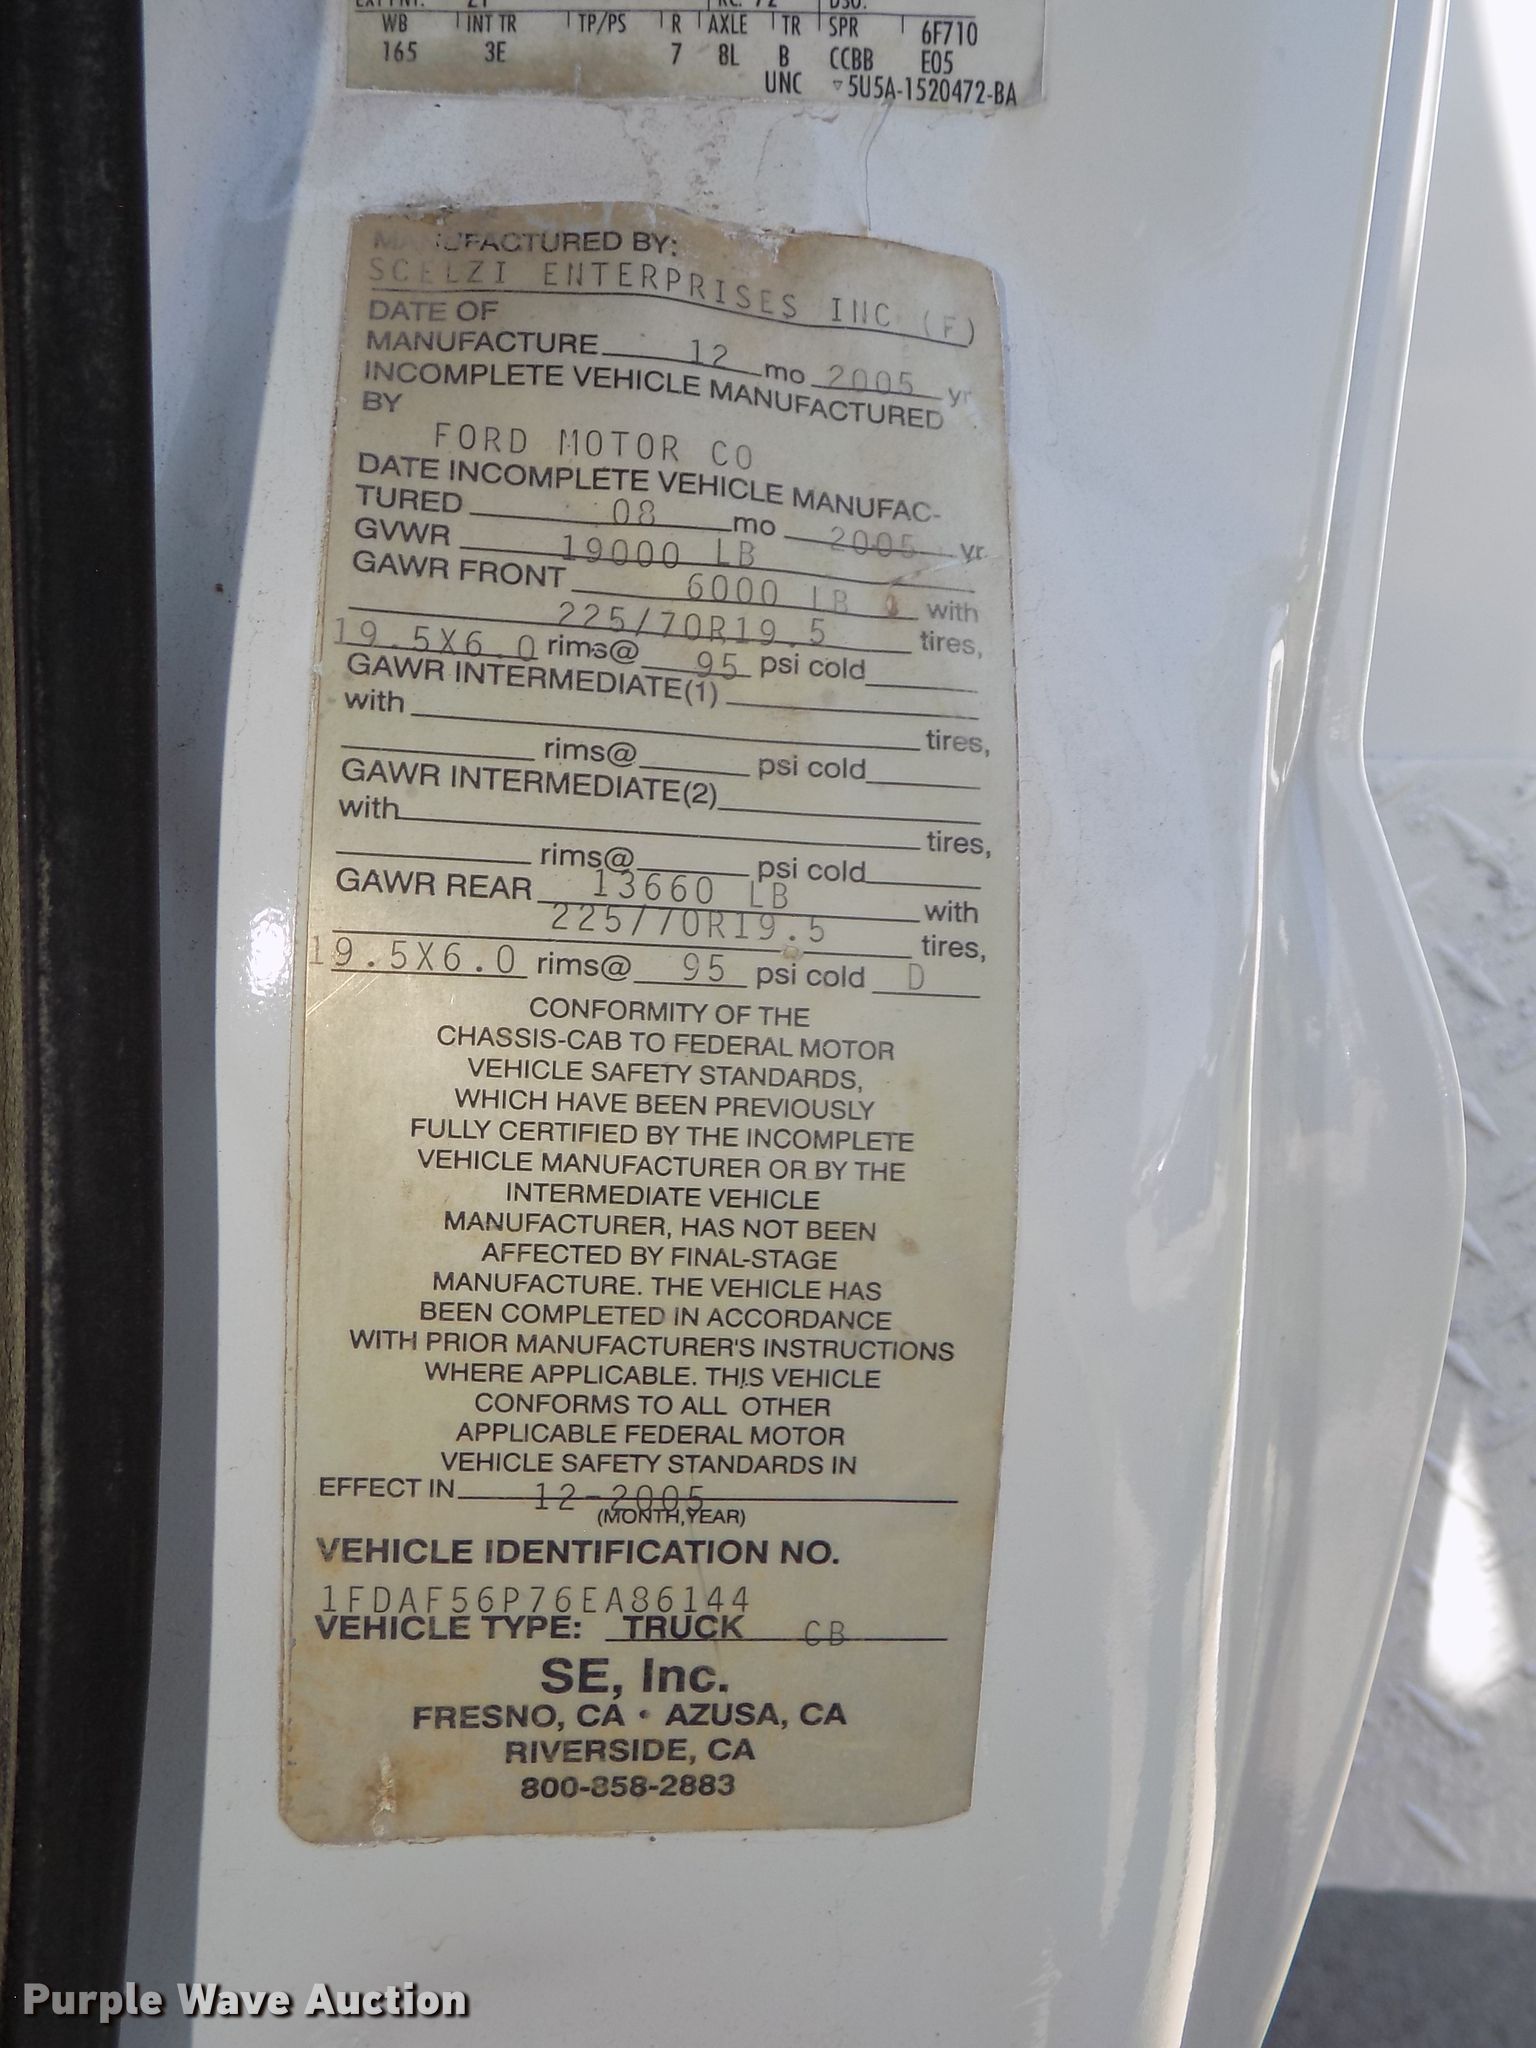 WB INT TR TP/PS R AXLE TR SPR 6F710
165 3E 7 8L B CCBB E05
UNC ▿5U5A-1520472-BA
MANUFACTURED BY:
SCELZI ENTERPRISES INC (F)
DATE OF
MANUFACTURE 12 mo 2005 yr
INCOMPLETE VEHICLE MANUFACTURED
BY
FORD MOTOR CO
DATE INCOMPLETE VEHICLE MANUFAC-
TURED 08 mo 2005 yr
GVWR 19000 LB
GAWR FRONT 6000 LB with
225/70R19.5 tires,
19.5X6.0 rims@ 95 psi cold
GAWR INTERMEDIATE(1)
with tires,
rims@ psi cold
GAWR INTERMEDIATE(2)
with tires,
rims@ psi cold
GAWR REAR 13660 LB with
225/70R19.5 tires,
19.5X6.0 rims@ 95 psi cold D
CONFORMITY OF THE
CHASSIS-CAB TO FEDERAL MOTOR
VEHICLE SAFETY STANDARDS,
WHICH HAVE BEEN PREVIOUSLY
FULLY CERTIFIED BY THE INCOMPLETE
VEHICLE MANUFACTURER OR BY THE
INTERMEDIATE VEHICLE
MANUFACTURER, HAS NOT BEEN
AFFECTED BY FINAL-STAGE
MANUFACTURE. THE VEHICLE HAS
BEEN COMPLETED IN ACCORDANCE
WITH PRIOR MANUFACTURER'S INSTRUCTIONS
WHERE APPLICABLE. THIS VEHICLE
CONFORMS TO ALL OTHER
APPLICABLE FEDERAL MOTOR
VEHICLE SAFETY STANDARDS IN
EFFECT IN 12-2005
(MONTH,YEAR)
VEHICLE IDENTIFICATION NO.
1FDAF56P76EA86144
VEHICLE TYPE: TRUCK CB
SE, Inc.
FRESNO, CA • AZUSA, CA
RIVERSIDE, CA
800-858-2883
Purple Wave Auction